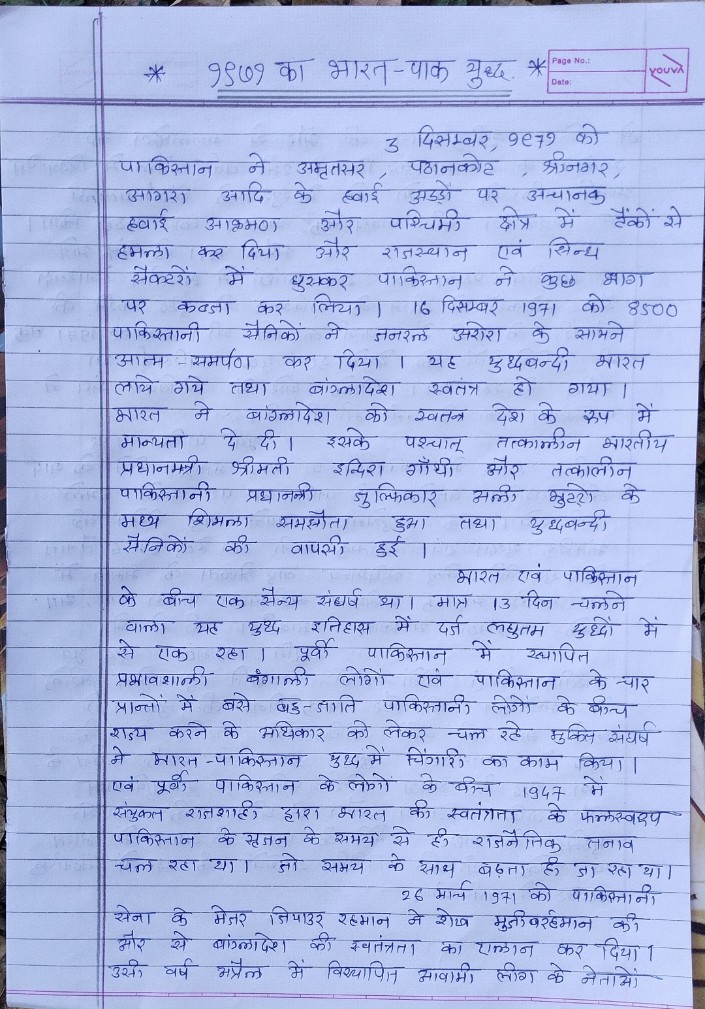 * १९७१ का भारत-पाक युध्द. *
Page No.:
Date:
YOUVA
3 दिसम्बर, १९७१ को
पाकिस्तान ने अमृतसर, पठानकोट, श्रीनगर,
आगरा आदि के हवाई अड्डों पर अचानक
हवाई आक्रमण और पश्चिमी क्षेत्र में टैंकों से
हमला कर दिया और राजस्थान एवं सिन्ध
सैक्टरों में घुसकर पाकिस्तान ने कुछ भाग
पर कब्जा कर लिया। 16 दिसम्बर 1971 को 8500
पाकिस्तानी सैनिकों ने जनरल अरोरा के सामने
आत्म-समर्पण कर दिया। यह युध्दबन्दी भारत
लाये गये तथा बांग्लादेश स्वतंत्र हो गया।
भारत ने बांग्लादेश को स्वतन्त्र देश के रूप में
मान्यता दे दी। इसके पश्चात् तत्कालीन भारतीय
प्रधानमन्त्री श्रीमती इन्दिरा गाँधी और तत्कालीन
पाकिस्तानी जुल्फिकार अली भुट्टो के
मध्य शिमला समझौता हुआ तथा युध्दबन्दी
सैनिकों की वापसी हुई।
भारत एवं पाकिस्तान
के बीच एक सैन्य संघर्ष था। मात्र 13 दिन चलने
वाला यह युध्द इतिहास में दर्ज लघुतम युध्दों में
से एक रहा। पूर्वी पाकिस्तान में स्थापित
प्रभावशाली बंगाली लोगों एवं पाकिस्तान के चार
प्रान्तों में बसे बहु-जाति पाकिस्तानी लोगों के बीच
राज्य करने के अधिकार को लेकर चल रहे मुक्ति संघर्ष
ने भारत-पाकिस्तान युध्द में चिंगारी का काम किया।
एवं पूर्वी पाकिस्तान के लोगों के बीच 1947 में
संयुक्त राजशाही द्वारा भारत की स्वतंत्रता के फलस्वरूप
पाकिस्तान के सृजन के समय से ही राजनैतिक तनाव
चल रहा था। जो समय के साथ बढ़ता ही जा रहा था।
26 मार्च 1971 को पाकिस्तानी
सेना के मेजर जियाउर रहमान ने शेख मुजीबर्रहमान की
और से बांग्लादेश की स्वतंत्रता का एलान कर दिया।
उसी वर्ष अप्रैल में विस्थापित आवामी लीग के नेताओं